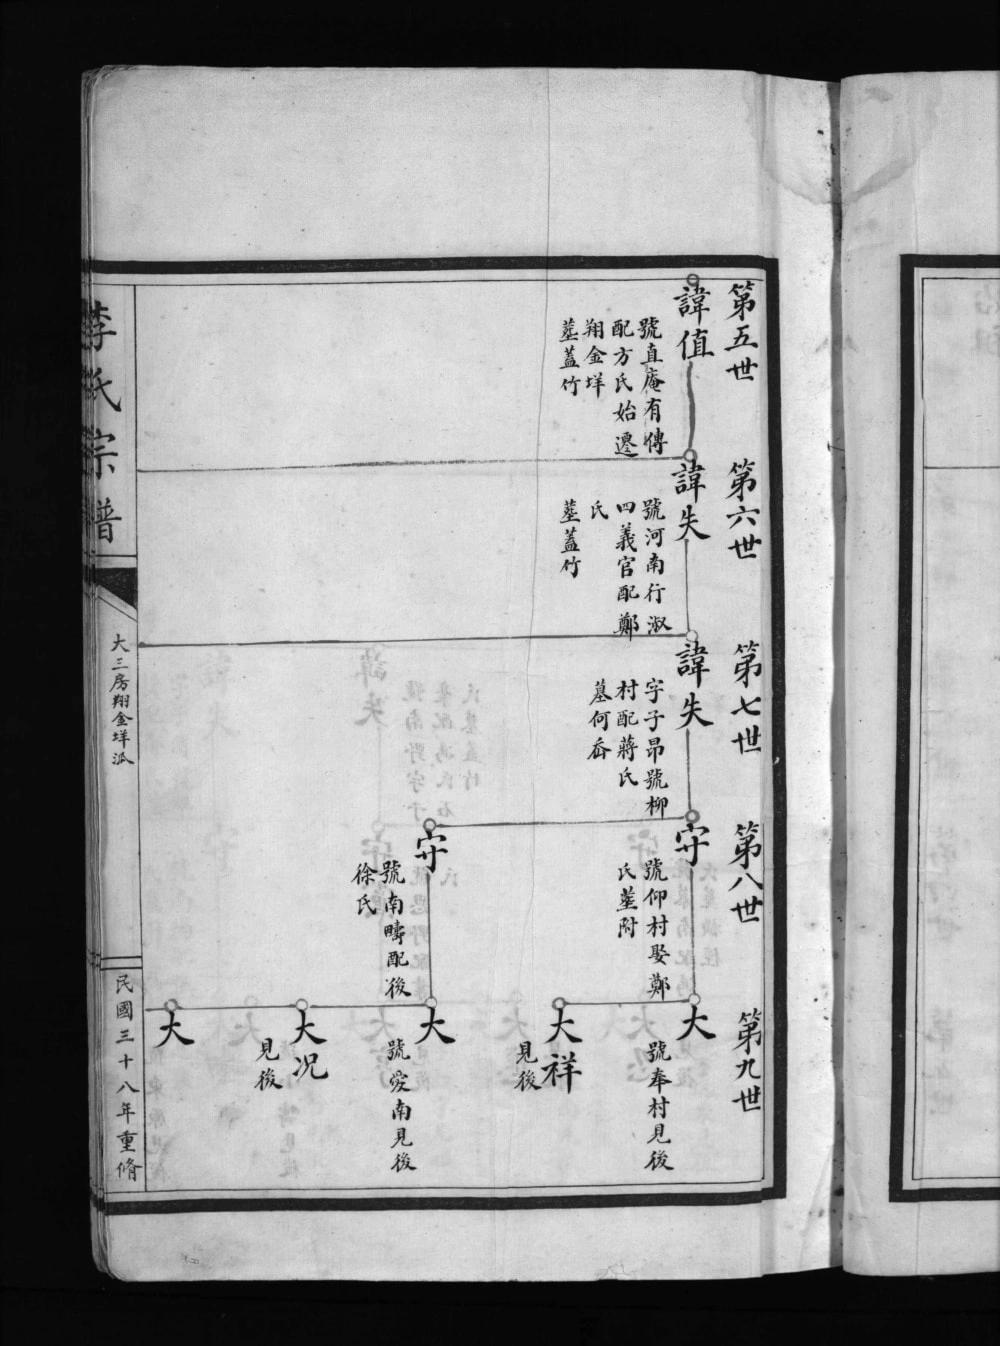 第五世
諱值
號直庵有傳
配方氏始遷
翔金垟
墓蓋竹
第六世
諱失
號河南行淑
四義官配鄭
氏
墓蓋竹
第七世
諱失
字子昂號柳
村配蔣氏
墓何岙
第八世
守
號仰村娶鄭
氏墓附
守
號南疇配後
徐氏
第九世
大
號奉村見後
大祥
見後
大
號愛南見後
大况
見後
大
李氏宗譜
大三房翔金垟派
民國三十八年重脩